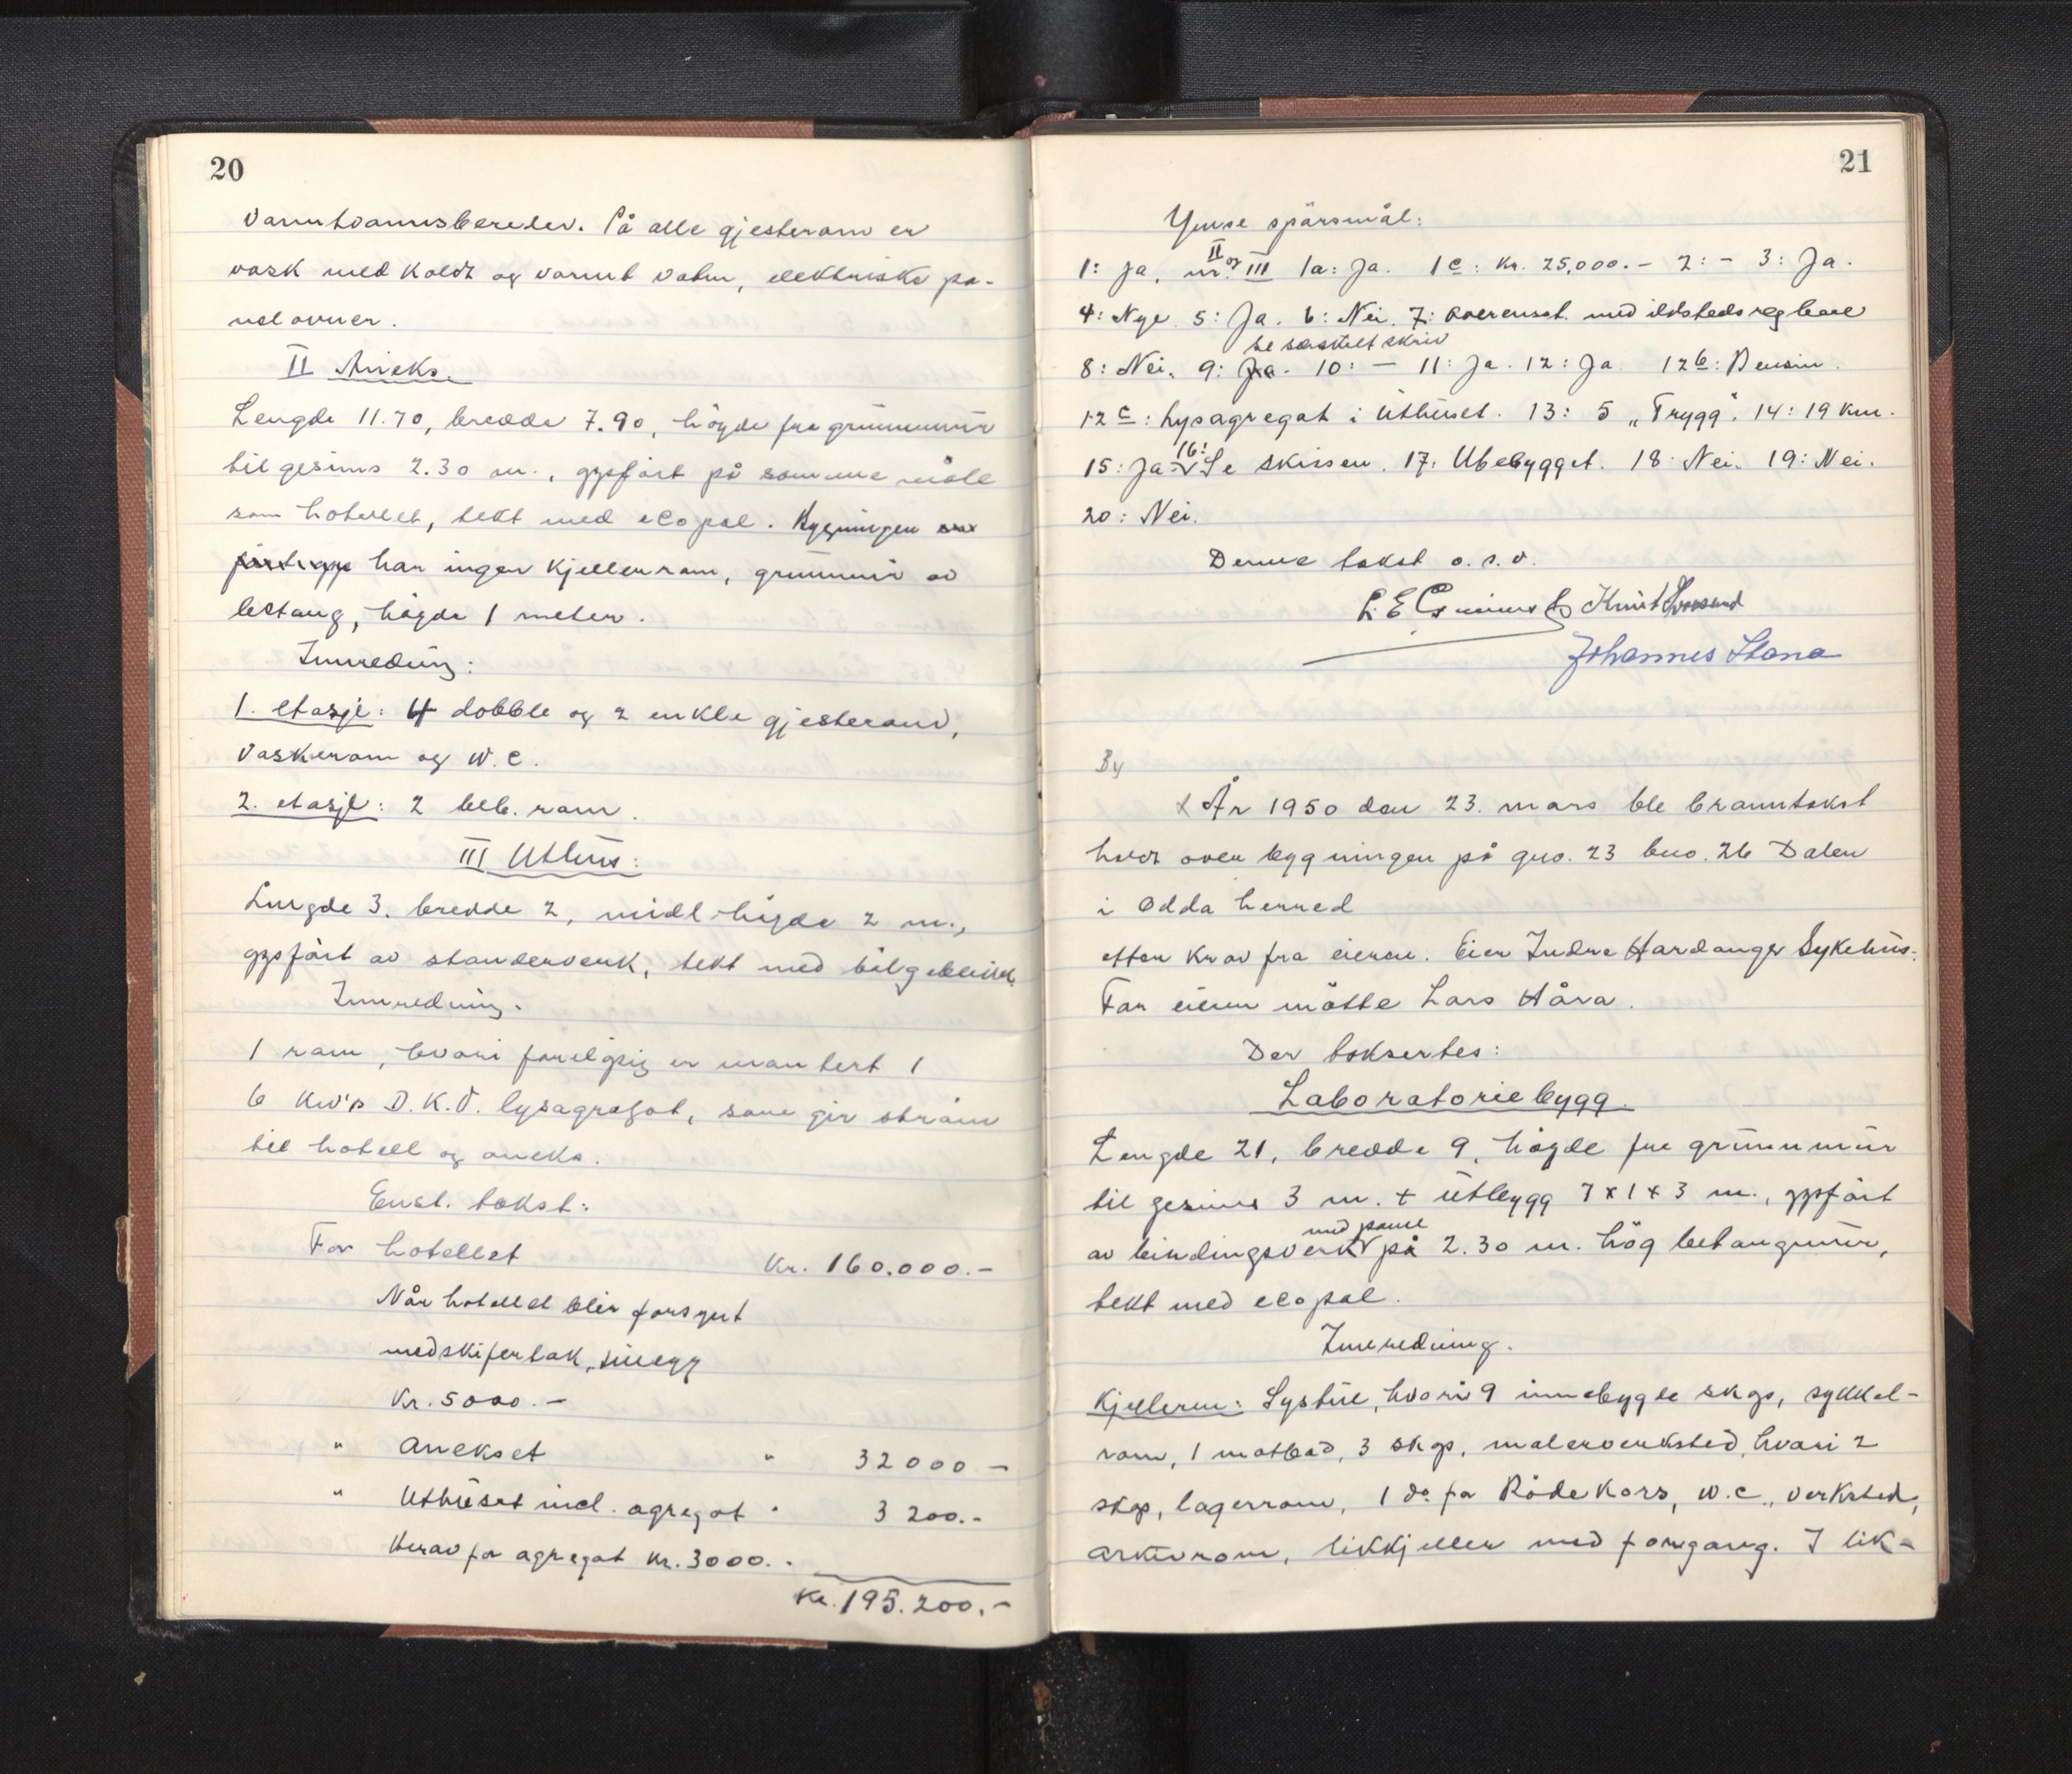 20
varmtvannsbereder. På alle gjesterom er
vask med koldt og varmt vatn, elektriske pa-
nelovner.
II Aneks.
Lengde 11.70, bredde 7.90, høyde fra grunnmur
til gesims 2.30 m., oppført på samme måte
som hotellet, tekt med ecopal. Bygningen
har ingen kjellerrom, grunnmur av
betong, høgde 1 meter.
Innreding:
1. etasje: 4 dobble og 2 enkle gjesterom,
vaskerom og W.C.
2. etasje: 2 beb. rom.
III Uthus:
Lengde 3, bredde 2, midl. høgde 2 m.,
oppført av standerverk, tekt med bølgeblikk.
Innredning.
1 rom, hvori foreløpig er montert 1
6 Kw's D.K.V. lysagregat, som gir strøm
til hotell og aneks.
Enst. takst:
For hotellet Kr. 160.000.-
Når hotellet blir forsynt
med skifertak, tillegg
Kr. 5000.-
" Anekset " 32000 -
" Uthuset incl. agregat " 3 200.-
Herav for agregat Kr. 3000.-
Kr. 195.200.-
21
Ymse spørsmål:
II og
1: Ja, nr. III 1a: Ja. 1c: Kr. 25,000.- 2: - 3: Ja.
4: Nye 5: Ja. 6: Nei. 7: Overenst. med ildstedsreglene
se særskilt skriv
8: Nei. 9: Ja. 10: - 11: Ja. 12: Ja 12b: Bensin.
12c: Lysagregat i uthuset. 13: 5 „Trygg". 14: 19 km.
15: Ja. 16: Se skissen. 17: Ubebygget. 18: Nei. 19: Nei.
20: Nei.
Denne takst o.s.v.
Johannes Stana
By
x År 1950 den 23. mars ble branntakst
holdt over bygningen på gno. 23 bno. 26 Dalen
i Odda herred
etter krav fra eieren. Eier Indre Hardanger Sykehus.
For eieren møtte Lars Håra.
Der taksertes:
Laboratoriebygg.
Lengde 21, bredde 9, høgde fra grunnmur
til gesims 3 m. + utbygg 7 x 1 x 3 m., oppført
med panel
av bindingsverk på 2.30 m. høg betongmur,
tekt med ecopal.
Innredning.
Kjelleren: Systue, hvori 9 innebygte skap, sykkel-
rom, 1 matbod, 3 skap, malerverksted, hvori 2
skap, lagerrom, 1 do for Røde Kors, W.C., verksted,
arkivrom, likkjeller med forgang. I lik-